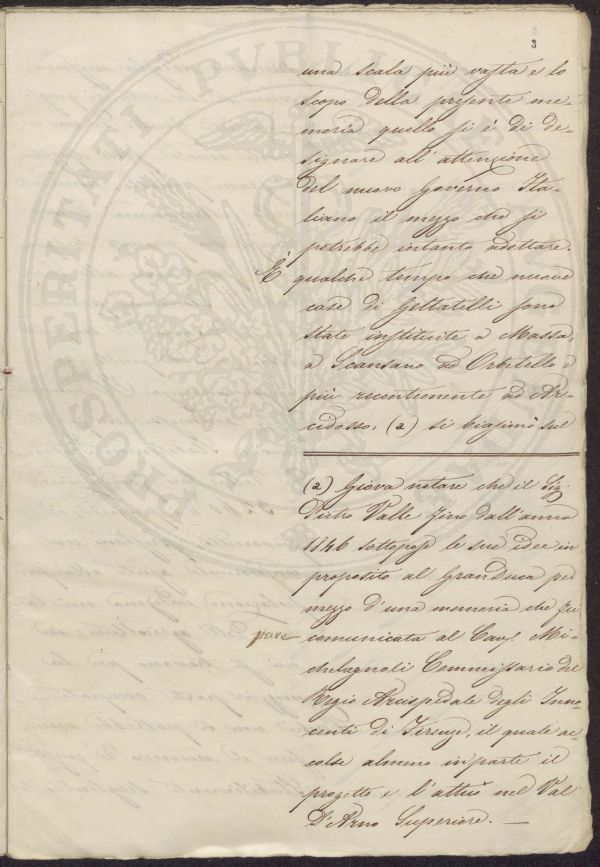 3
una scala più vasta e lo
scopo della presente me-
moria quello si è di de-
signare all'attenzione
del nuovo Governo Ita-
liano il mezzo che si
potrebbe intanto adottare.
È qualche tempo che nuove
case di Gettatelli sono
state instituite a Massa,
a Scansano ad Orbitello e
più recentemente ad Ar-
cidosso. (a) si biasimò sul
(a) Giova notare che il Sig.
Pietro Valle fino dall'anno
1846 sottopose le sue idee in
proposito al GranDuca per
mezzo d'una memoria che fu
pure comunicata al Cav. Mi-
chelagnoli Commissario del
Regio Arcispedale degli Inno-
centi di Firenze, il quale ac-
colse almeno in parte il
progetto e l'attuò nel Val
D'Arno Superiore. —
PROSPERITATI PVBLICAE